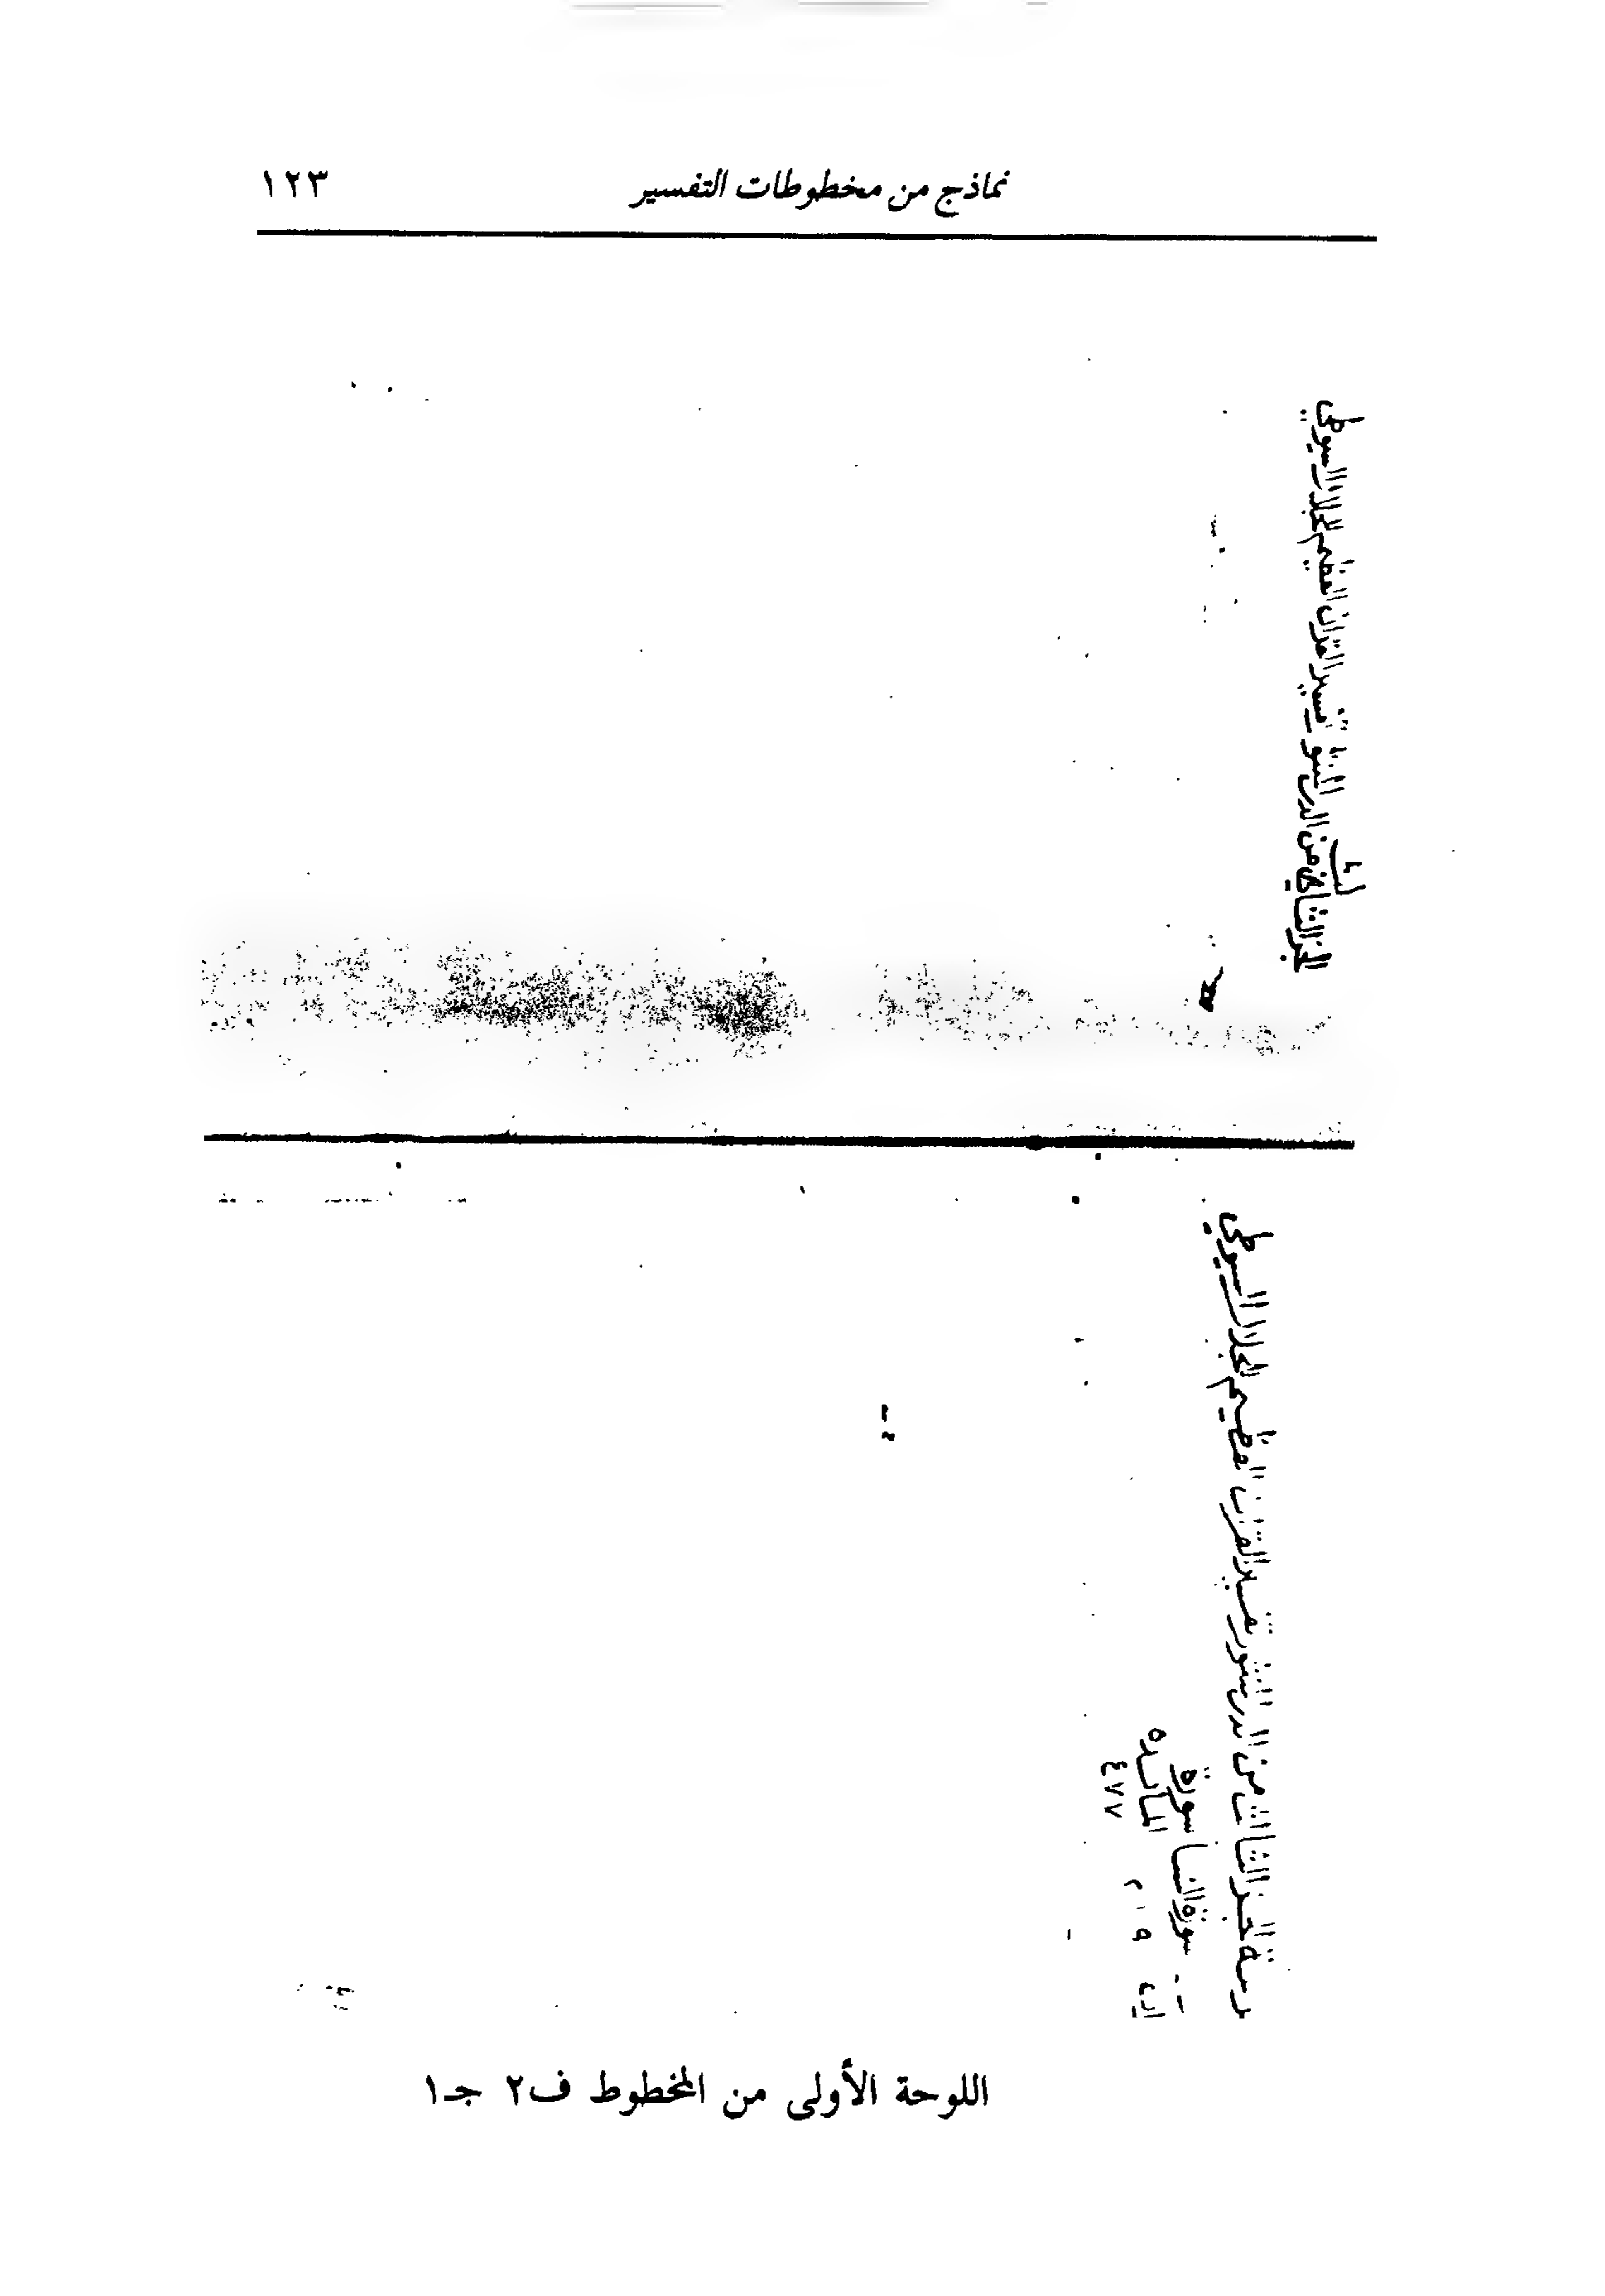 نماذج من مخطوطات التفسير ١٢٣
الجز الثاني من الدر المنثو تفسير القران العظيم للجلال السيوطي
الجز الثالث من الدر المنثور تفسير القران العظيم للجلال السيوطي
سورة النسا سورة
المايده
٤٧٧
اللوحة الأولى من المخطوط ف٢ جـ١